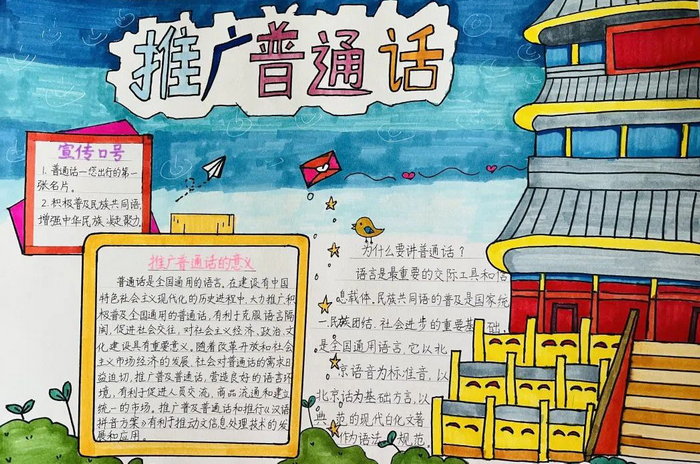 推广普通话
宣传口号
1. 普通话—您出行的第一
张名片。
2. 积极普及民族共同语,
增强中华民族凝聚力
推广普通话的意义
普通话是全国通用的语言,在建设有中国
特色社会主义现代化的历史进程中,大力推广积
极普及全国通用的普通话,有利于克服语言隔
阂,促进社会交往,对社会主义经济、政治、文
化建设具有重要意义。随着改革开放和社会
主义市场经济的发展,社会对普通话的需求日
益迫切,推广普及普通话,营造良好的语言环
境,有利于促进人员交流,商品流通和建立
统一的市场。推广普及普通话和推行《汉语
拼音方案》有利于推动文信息处理技术的发
展和应用。
为什么要讲普通话?
语言是最重要的交际工具和信
息载体,民族共同语的普及是国家统
一,民族团结,社会进步的重要基础,
是全国通用语言,它以北
京语音为标准音,以
北京话为基础方言,以
典范的现代白化文著
作为语法规范,